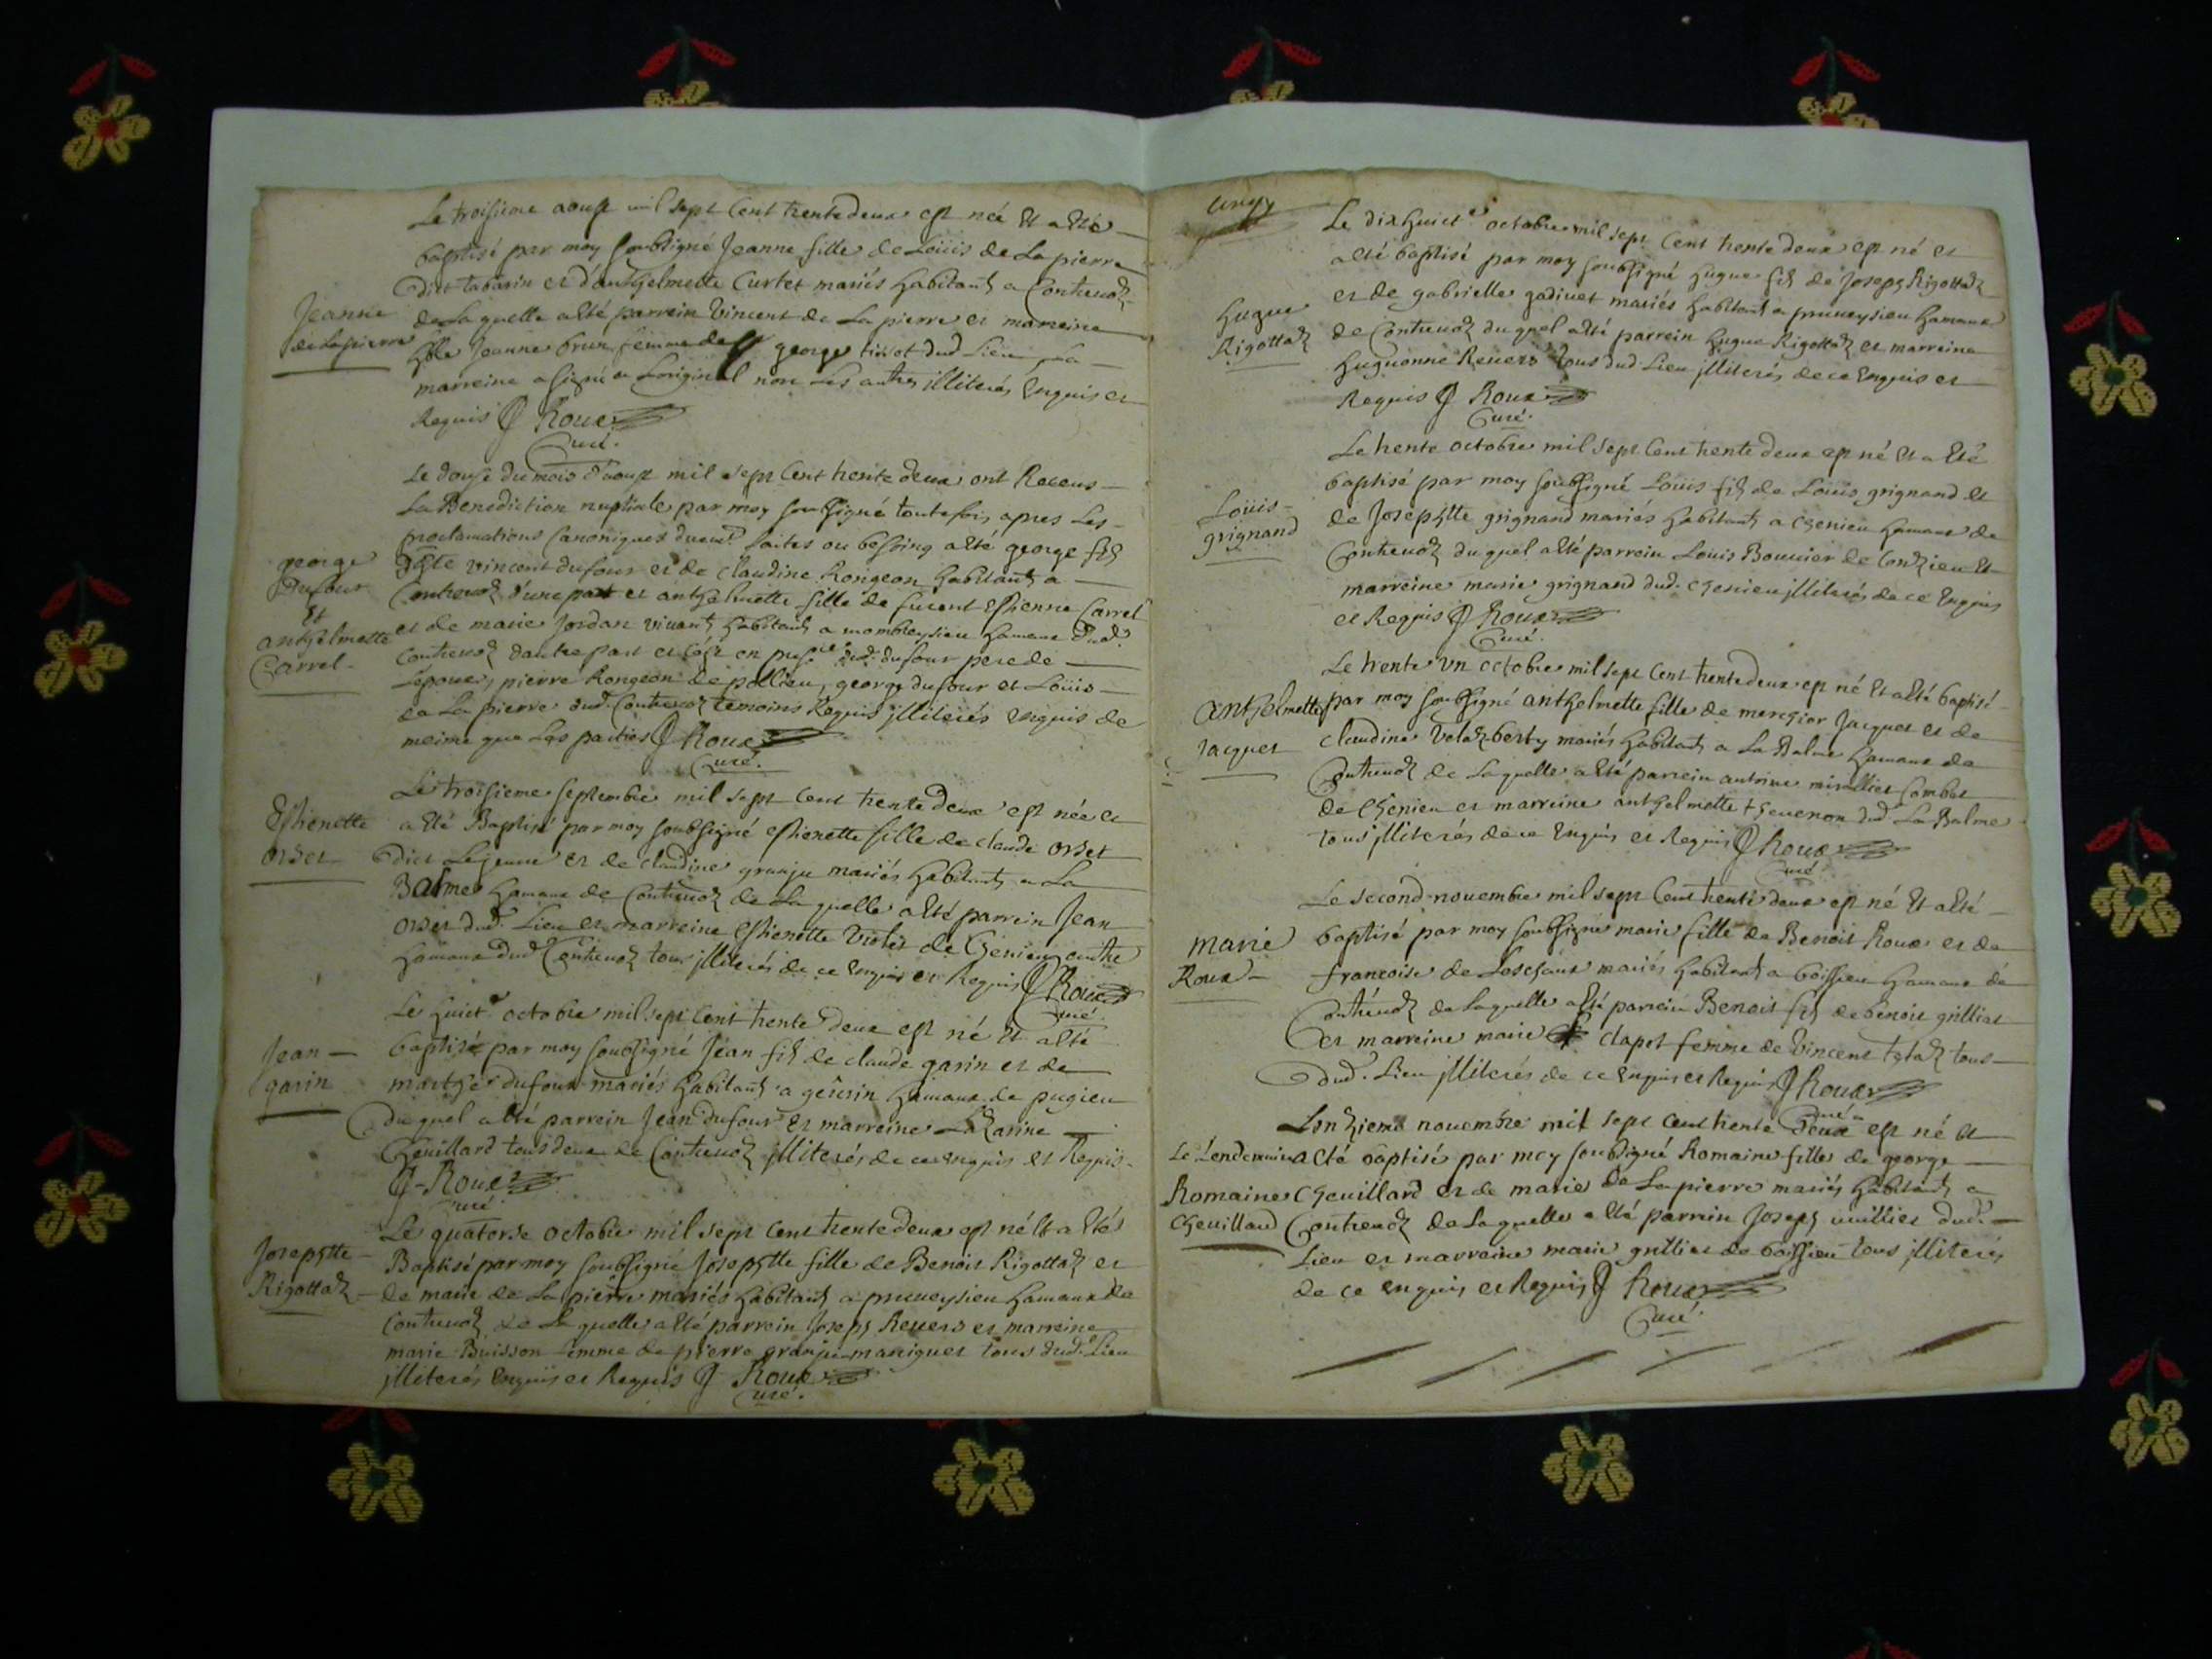 Le troisieme aoust mil sept Cent trente deux est née Et a Eté
baptisé par moy soubsigné Jeanne fille de Loüis de La pierre
dict tabarin et d'anthelmette Curtet mariés habitants a Contrevoz
Jeanne
de Lapierre
de La quelle a Eté parrein Vincent de La pierre et marreine
hble Jeanne brun femme de george tissot dud Lieu La
marreine a signé a Loriginal non Les autres illiterés Enquis et
Requis J Roux
Curé.
Le douse du mois d'aoust mil sept Cent trente deux ont Receus
La Benediction nuptiale par moy soubsigné toutefois apres Les
proclamations Canoniques duemt faites ou besoing a Eté george fils
george
Dufour
Et
anthelmette
Carrel
vincent dufour et de claudine Rongeon habitants a
Contrevoz d'une part et anthelmette fille de furent Estienne Carrel
et de marie Jordan vivants habitants a mombreysieu hameau dud.
Contrevoz dautre part et ce en dud. dufour pere de
Lepoux, pierre Rongeon de pollieu, george dufour et Loüis
de La pierre dud. Contrevoz temoins Requis illiterés Enquis de
meime que Les parties J Roux
Curé.
Le troisieme septembre mil sept Cent trente deux est née et
Estienette
orset
a Eté Baptisé par moy soubsigné Estienette fille de claude orset
dict Lejeune et de claudine granju mariés habitants a La
Balme hameau de Contrevoz de La quelle a Eté parrein Jean
orset dud. Lieu et marreine Estienette Violet de Chenieu autre
hameau dud. Contrevoz tous illiterés de ce Enquis et Requis J Roux
Curé
Le huict octobre mil sept Cent trente deux est né Et a Eté
Jean
garin
baptisé par moy soubsigné Jean fils de claude garin et de
marthe dufour mariés habitants a hameau de pugieu
du quel a Eté parrein Jean dufour et marreine Lazarine
Cheuillard tous deux de Contrevoz illiterés de ce enquis et Requis
J Roux
Curé
Le quatorse octobre mil sept Cent trente deux est né Et a Eté
Josephtte
Rigottaz
Baptisé par moy soubsigné Josephtte fille de Benoit Rigottaz et
de marie de La pierre mariés habitants a preveysieu hameau de
Contrevoz de La quelle a Eté parrein Joseph Revers et marreine
marie Buisson femme de pierre granju mariguet tous dud. Lieu
illiterés Enquis et Requis J Roux
Curé.
Le dixhuict octobre mil sept Cent trente deux est né et
a Eté baptisé par moy soubsigné hugue fils de Joseph Rigottaz
hugue
Rigottaz
et de gabrielle gadivet mariés habitants a preveysieu hameau
de Contrevoz du quel a Eté parrein hugue Rigottaz et marreine
huguonne Revers tous dud Lieu illiterés de ce Enquis et
Requis J Roux
Curé.
Le trente octobre mil sept Cent trente deux est né Et a Eté
Loüis
grignand
baptisé par moy soubsigné Loüis fils de Loüis grignand Et
de Josephtte grignand mariés habitants a Chenieu hameau de
Contrevoz du quel a Eté parrein Louis Bouvier de Conzieu Et
marreine marie grignand dud. Chenieu illiterés de ce Enquis
et Requis J Roux
Curé.
Le trente un octobre mil sept Cent trente deux est né Et a Eté baptisé
anthelmette
Jacquet
par moy soubsigné anthelmette fille de merchior Jacquet et de
claudine mariés habitants a La Balme hameau de
Contrevoz de La quelle a Eté parrein antoine Combet
de Chenieu et marreine anthelmette theuenon dud. La Balme
tous illiterés de ce Enquis et Requis J Roux
Curé
Le second novembre mil sept Cent trente deux est né Et a Eté
marie
Roux
baptisé par moy soubsigné marie fille de Benoit Roux et de
francoise de Leschaux mariés habitants a boissieu hameau de
Contrevoz de La quelle a Eté parrein Benoit fils de benoit grilliet
et marreine marie clapot femme de Vincent tous
dud. Lieu illiterés de ce enquis et Requis J Roux
Curé
Lonzieme novembre mil sept Cent trente deux est né Et
Le Lendemain a Eté baptisé par moy soubsigné Romaine fille de george
Romaine
Cheuillard
Cheuillard et de marie de La pierre mariés habitants a
Contrevoz de La quelle a Eté parrein Joseph dud.
Lieu et marreine marie grilliet de boissieu tous illiterés
de ce enquis et Requis J Roux
Curé.